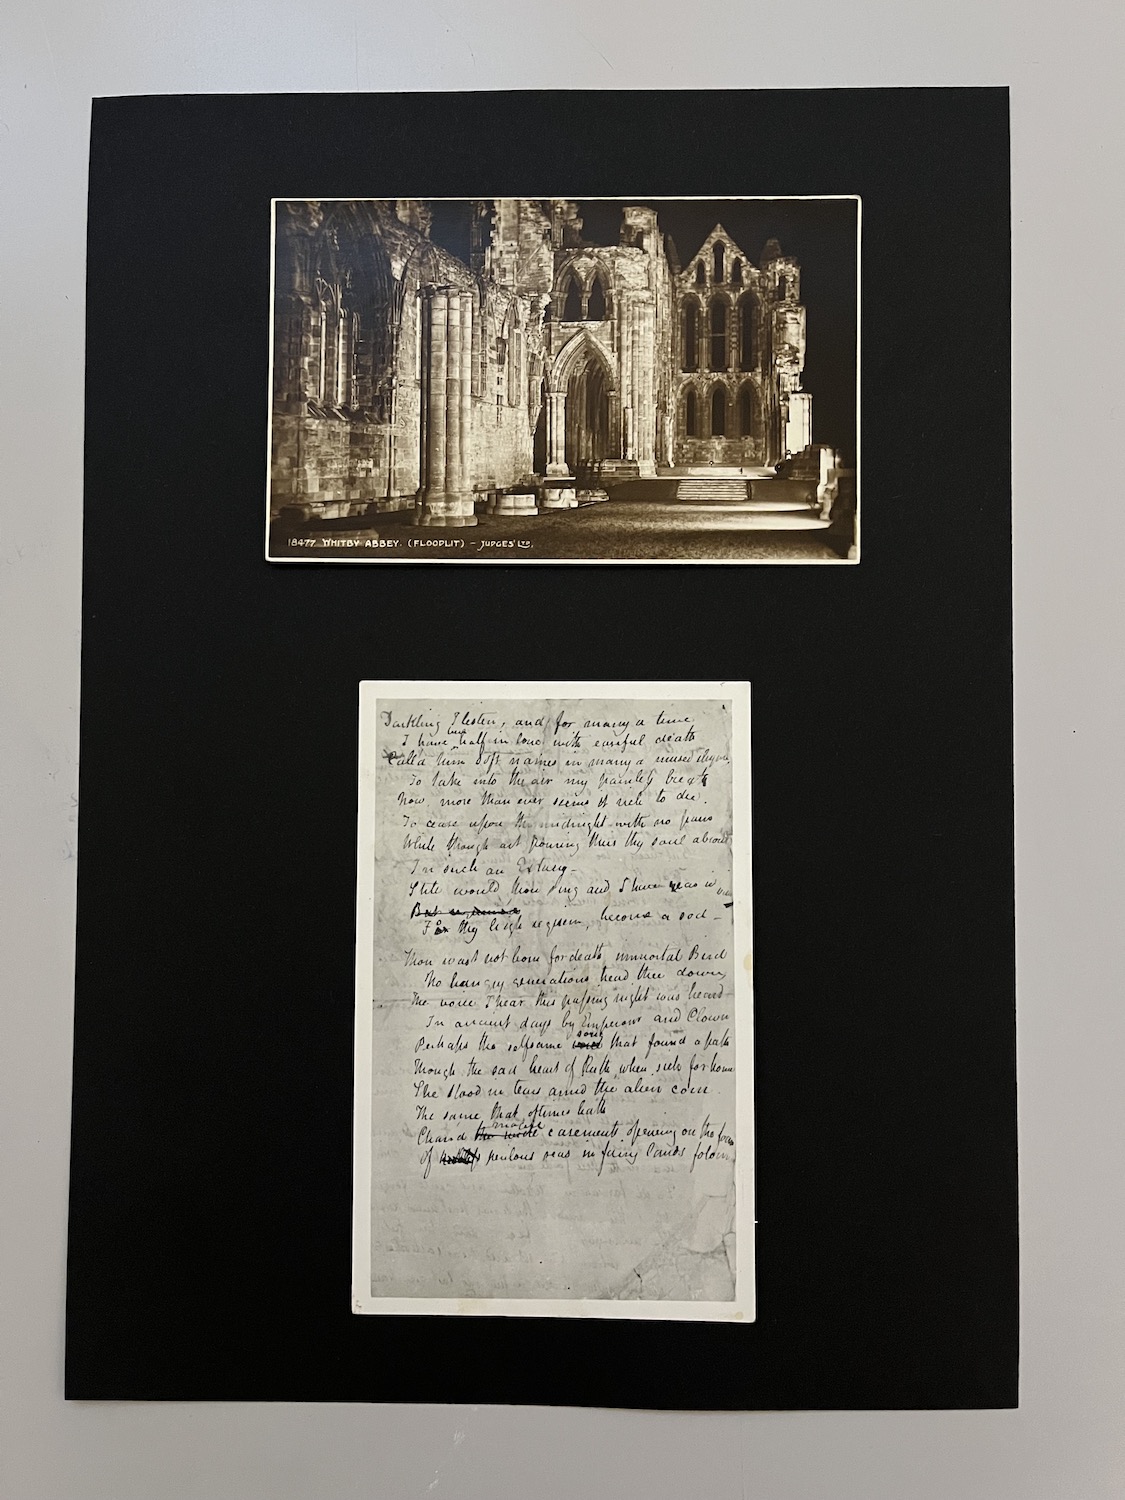 18477 WHITBY ABBEY. (FLOODLIT) – JUDGES' LTD.
Darkling I listen, and for many a time
I have been half in love with easeful death
Call'd him soft names in many a mused rhyme,
To take into the air my painless breath
Now, more than ever seems it rich to die.
To cease upon the midnight with no pain
While thou art pouring thus thy soul abroad
In such an Extasy –
Still would thou sing and I have ears in vain
But
For thy high requiem, become a sod –
Thou wast not born for death, immortal Bird
No hungry generations tread thee down,
The voice I hear this passing night was heard
In ancient days by Emperour and Clown
Perhaps the selfsame voice song that found a path
Through the sad heart of Ruth, when sick for home
She stood in tears amid the alien corn.
The same that oftimes hath
Charm'd the wide magic casements opening on the foam
Of perilous seas in fairy lands folorn